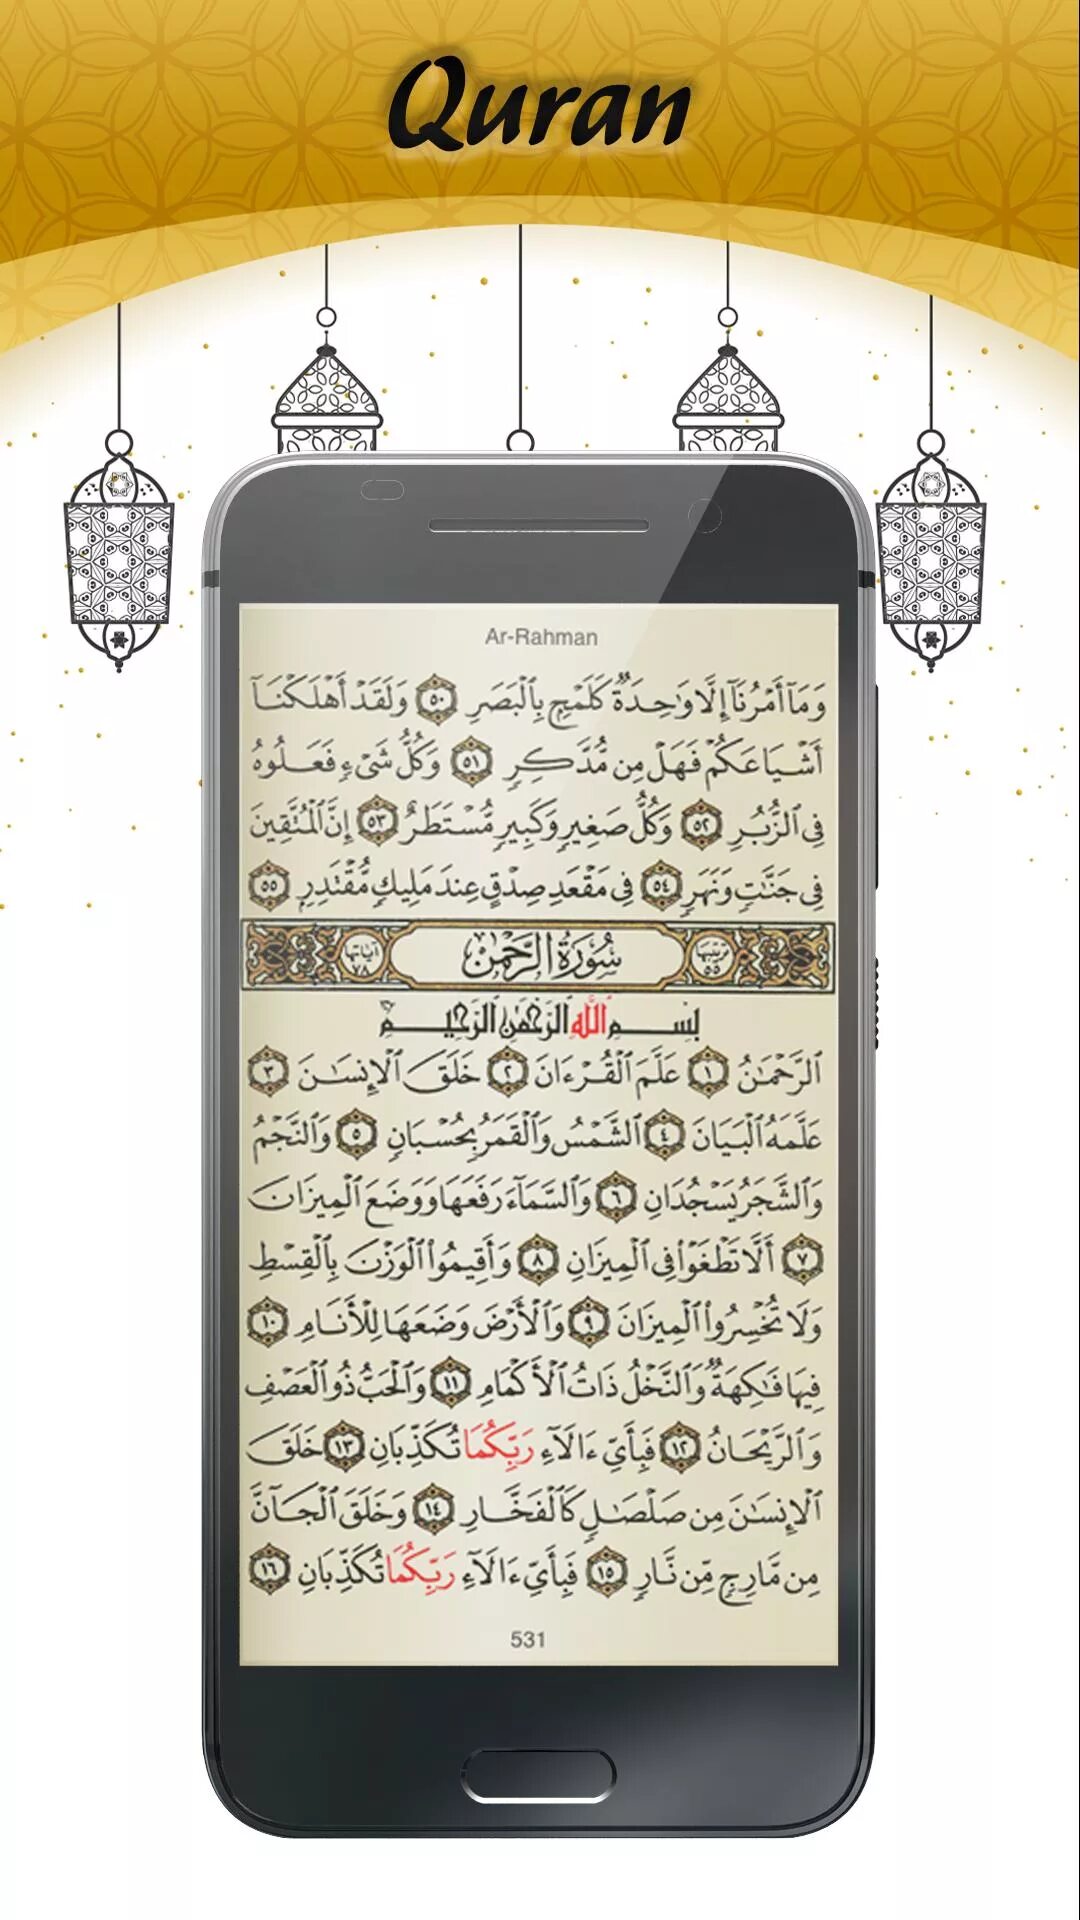 Quran
Ar-Rahman
وَمَآ أَمْرُنَآ إِلَّا وَٰحِدَةٌ كَلَمْحٍۭ بِٱلْبَصَرِ ٥٠ وَلَقَدْ أَهْلَكْنَآ
أَشْيَاعَكُمْ فَهَلْ مِن مُّدَّكِرٍ ٥١ وَكُلُّ شَىْءٍ فَعَلُوهُ
فِى ٱلزُّبُرِ ٥٢ وَكُلُّ صَغِيرٍ وَكَبِيرٍ مُّسْتَطَرٌ ٥٣ إِنَّ ٱلْمُتَّقِينَ
فِى جَنَّٰتٍ وَنَهَرٍ ٥٤ فِى مَقْعَدِ صِدْقٍ عِندَ مَلِيكٍ مُّقْتَدِرٍۭ ٥٥
ترتيبها ٥٥ سُورَةُ الرَّحْمَٰن آياتها ٧٨
بِسْمِ ٱللَّهِ ٱلرَّحْمَٰنِ ٱلرَّحِيمِ
ٱلرَّحْمَٰنُ ١ عَلَّمَ ٱلْقُرْءَانَ ٢ خَلَقَ ٱلْإِنسَٰنَ ٣
عَلَّمَهُ ٱلْبَيَانَ ٤ ٱلشَّمْسُ وَٱلْقَمَرُ بِحُسْبَانٍ ٥ وَٱلنَّجْمُ
وَٱلشَّجَرُ يَسْجُدَانِ ٦ وَٱلسَّمَآءَ رَفَعَهَا وَوَضَعَ ٱلْمِيزَانَ
٧ أَلَّا تَطْغَوْا۟ فِى ٱلْمِيزَانِ ٨ وَأَقِيمُوا۟ ٱلْوَزْنَ بِٱلْقِسْطِ
وَلَا تُخْسِرُوا۟ ٱلْمِيزَانَ ٩ وَٱلْأَرْضَ وَضَعَهَا لِلْأَنَامِ ١٠
فِيهَا فَٰكِهَةٌ وَٱلنَّخْلُ ذَاتُ ٱلْأَكْمَامِ ١١ وَٱلْحَبُّ ذُو ٱلْعَصْفِ
وَٱلرَّيْحَانُ ١٢ فَبِأَىِّ ءَالَآءِ رَبِّكُمَا تُكَذِّبَانِ ١٣ خَلَقَ
ٱلْإِنسَٰنَ مِن صَلْصَٰلٍ كَٱلْفَخَّارِ ١٤ وَخَلَقَ ٱلْجَآنَّ
مِن مَّارِجٍ مِّن نَّارٍ ١٥ فَبِأَىِّ ءَالَآءِ رَبِّكُمَا تُكَذِّبَانِ ١٦
531